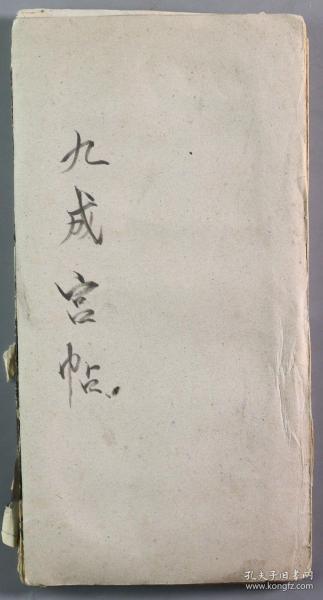 九成宫帖
孔夫子旧书网
www.kongfz.com